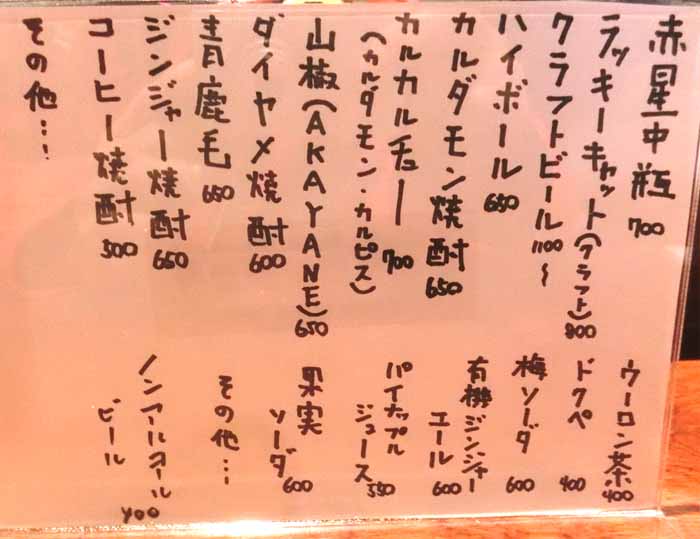 赤星中瓶 700
ラッキーキャット(クラフト) 800
クラフトビール 1100~
ハイボール 650
カルダモン焼酎 650
カルカルチュー 700
(カルダモン・カルピス)
山椒(AKAYANE) 650
ダイヤメ焼酎 600
青鹿毛 650
ジンジャー焼酎 650
コーヒー焼酎 500
その他…
ウーロン茶 400
ドクペ 400
梅ソーダ 600
有機ジンジャー
エール 600
パイナップル
ジュース 550
果実
ソーダ 600
その他…
ノンアルコール
ビール 400